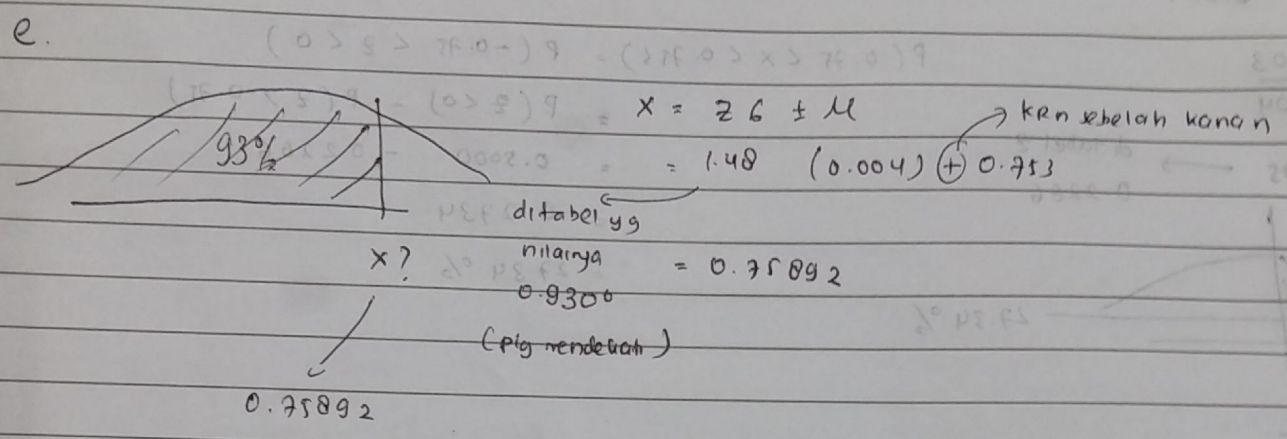 e.
93%
x = z 6 ± M
→ krn sebelah kanan
= 1.48 (0.004) + 0.753
ditabel yg
nilainya
0.9306
(plg mendekati)
= 0.75892
x?
0.75892